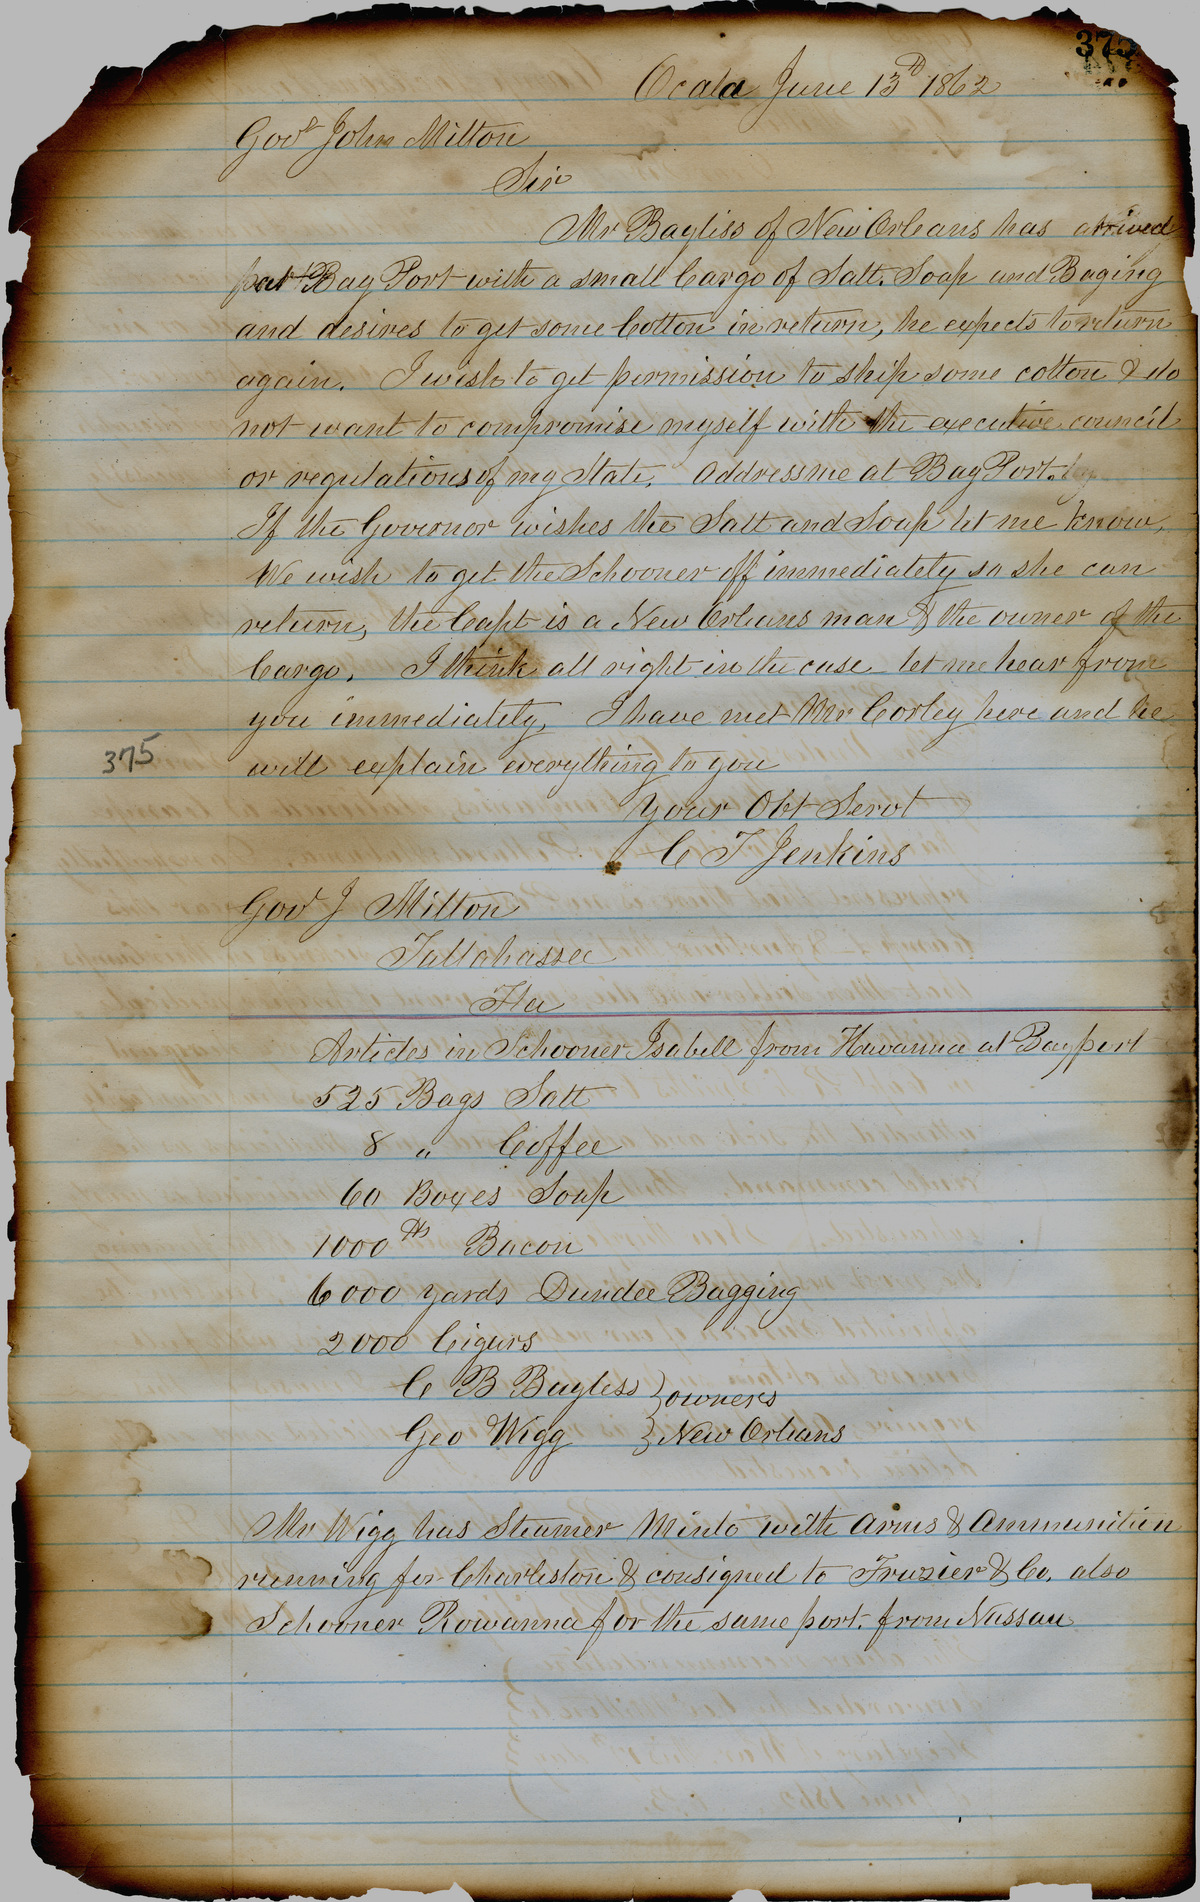 375
Ocala June 13th 1862
Govr John Milton
Sir
Mr Bayliss of New Orleans has arrived
at Bay Port with a small Cargo of Salt. Soap and Baging
and desires to get some Cotton in return, he expects to return
again. I wish to get permission to ship some cotton & do
not want to compromise myself with the executive council
or regulations of my State. Address me at Bay Port.
If the Governor wishes the Salt and Soap let me know.
We wish to get the Schooner off immediately so she can
return, the Capt is a New Orleans man & the owner of the
Cargo. I think all right in the case let me hear from
you immediately, I have met Mr Corley here and he
375
will explain everything to you
Your Obt Servt
C T Jenkins
Govr J Milton
Tallahassee
Fla
Articles in Schooner Isabell from Havanna at Bayport
525 Bags Salt
8 " Coffee
60 Boxes Soap
1000 lbs Bacon
6000 yards Dundee Bagging
2000 Cigars
C B Bayless } owners
Geo Wigg } New Orleans
Mr Wigg has Steamer Minto with Arms & Ammunition
running for Charleston & consigned to Frazier & Co. also
Schooner Rowanna for the same port. from Nassau